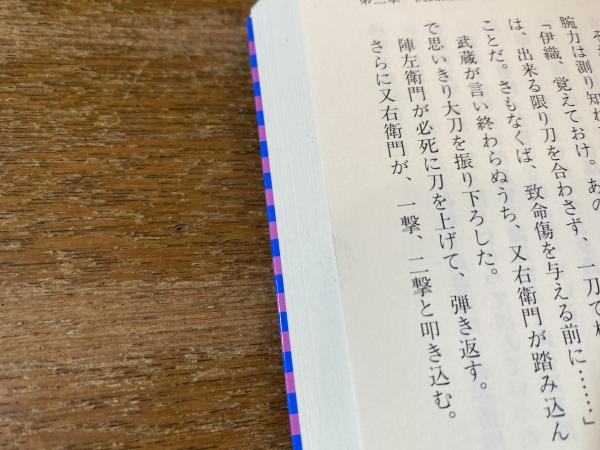 第二章
腕力は測り知れ
「伊織、覚えておけ。あの
は、出来る限り刀を合わさず、一刀で
ことだ。さもなくば、致命傷を与える前に……」
武蔵が言い終わらぬうち、又右衛門が踏み込ん
で思いきり大刀を振り下ろした。
陣左衛門が必死に刀を上げて、弾き返す。
さらに又右衛門が、一撃、二撃と叩き込む。